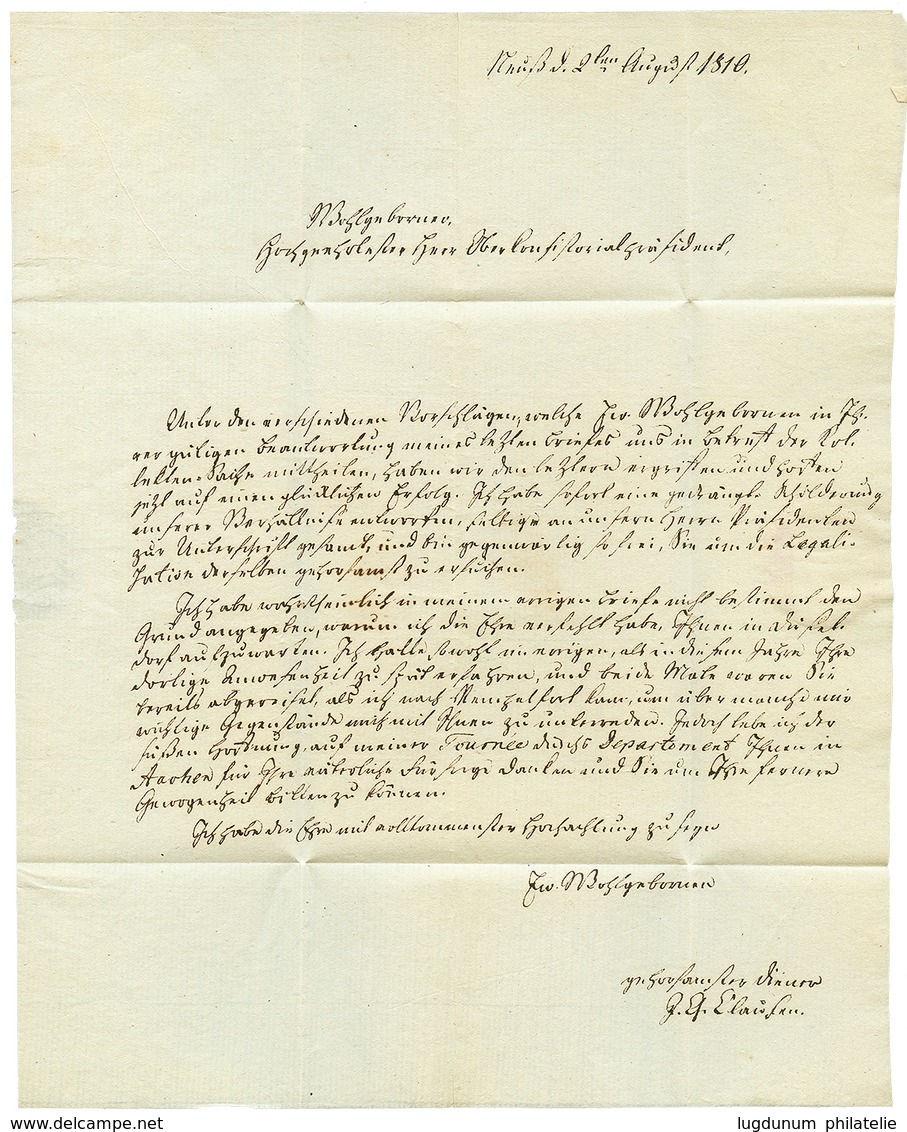 Neuß d. 2ten August 1810.
Wohlgeborner,
Hochgeehrtester Herr Oberkonsistorialpräsident,
Unter den verschiedenen Vorschlägen, welche Ew. Wohlgebornen in Ih-
rer gütigen Beantwortung meines lezten Briefes uns in Betreff der Kol-
lekten-Sache mittheilen, haben wir den leztern ergriffen und hoffen
jezt auf einen glücklichen Erfolg. Ich habe sofort eine gedrängte Schilderung
unserer Verhältnisse entworfen, selbige an unsern Herrn Präsidenten
zur Unterschrift gesandt, und bin gegenwärtig so frei, Sie um die Legali-
sation derselben gehorsamst zu ersuchen.
Ich habe wahrscheinlich in meinem vorigen Briefe nicht bestimmt den
Grund angegeben, warum ich die Ehre verfehlt habe, Ihnen in Düssel-
dorf aufzuwarten. Ich hatte sowohl im vorigen, als in diesem Jahre Ihre
dortige Anwesenheit zu spät erfahren, und beide Male waren Sie
bereits abgereiset, als ich nach kam, um über manche mir
wichtige Gegenstände mich mit Ihnen zu unterreden. Jedoch lebe ich der
süßen Hoffnung, auf meiner Tournée durchs Departement Ihnen in
Aachen für Ihre väterliche Fürsorge danken und Sie um Ihre fernere
Gewogenheit bitten zu können.
Ich habe die Ehre mit vollkommenster Hochachtung zu seyn
Ew. Wohlgebornen
gehorsamster Diener
J. G. Clausen.
delcampe.net
lugdunum philatelie